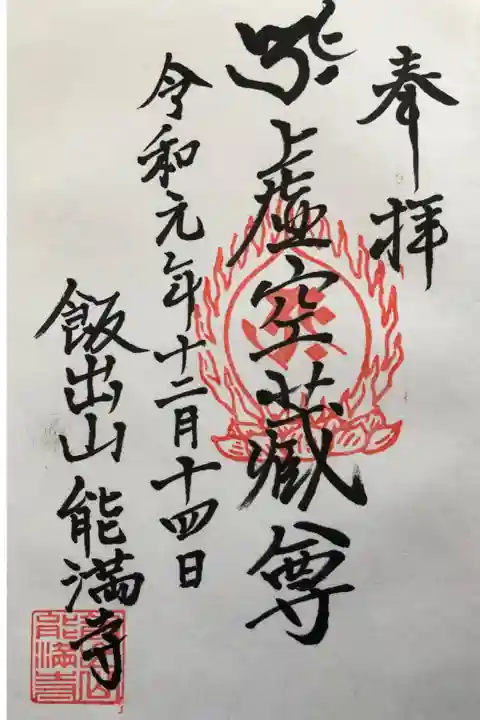 奉拝
虚空蔵尊
令和元年十二月十四日
飯出山 能満寺
能満寺